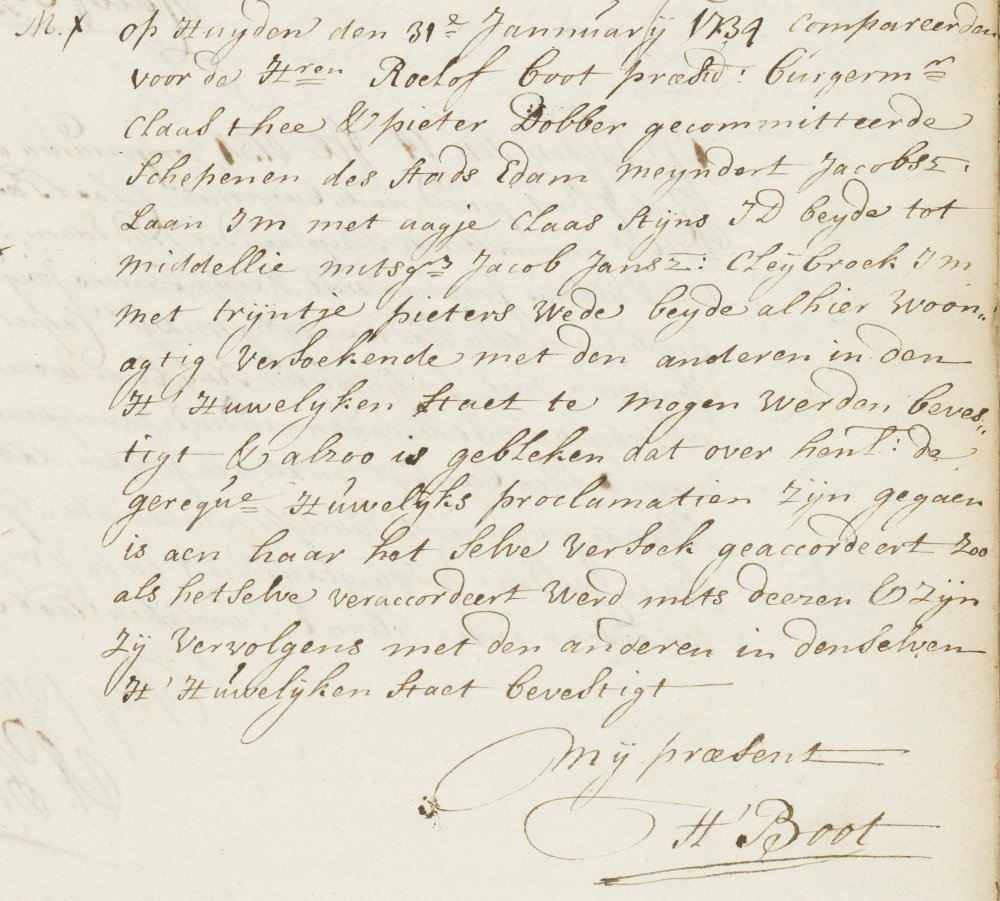 M. x op Huyden den 31e Jannuarij 1734 Compareerden
voor de Hren Roelof boot præsid: burgermr
Claas thee & pieter Dobber gecommitteerde
Schepenen des Stads Edam meyndert Jacobsz:
Laan Jm met aagje Claas Stijns JD beyde tot
middellie mitsgrs Jacob Jansz: Cleybroek Jm
met trijntje pieters Wede beyde alhier Woon„
agtig Versoekende met den anderen in den
H' Huwelyken Staet te mogen werden beves„
tigt & alzoo is gebleken dat over henl: de
gereque Huwelyks proclamatien zyn gegaen
is aen haar het selve Versoek geaccordeert zoo
als hetselve veraccordeert Werd mits deezen & zyn
zy Vervolgens met den anderen in denselven
H' Huwelyken Staet bevestigt
Mij præsent
H' Boot